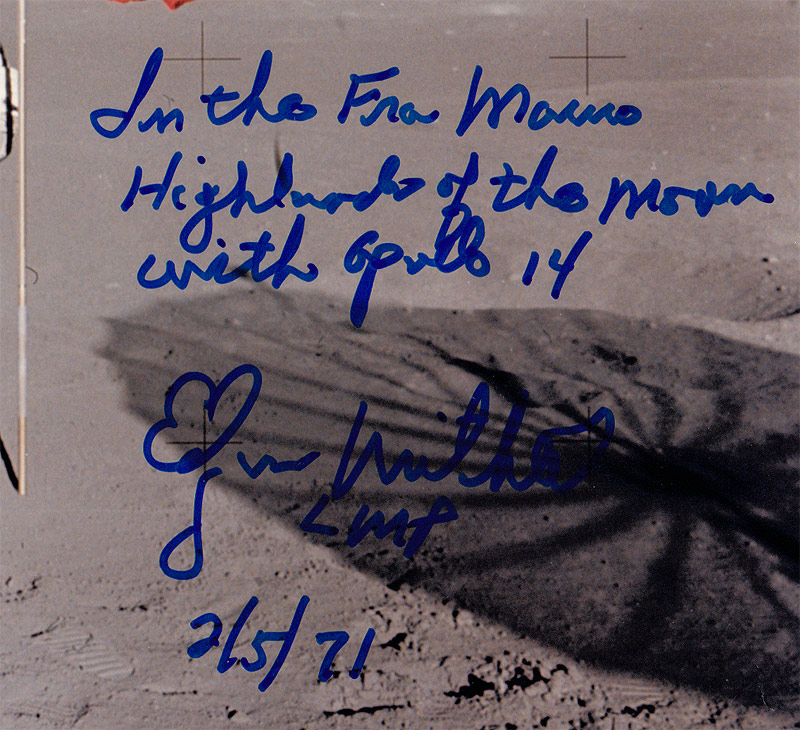 In the Fra Mauro
Highlands of the Moon
with Apollo 14
Edgar Mitchell
LMP
2/5/71